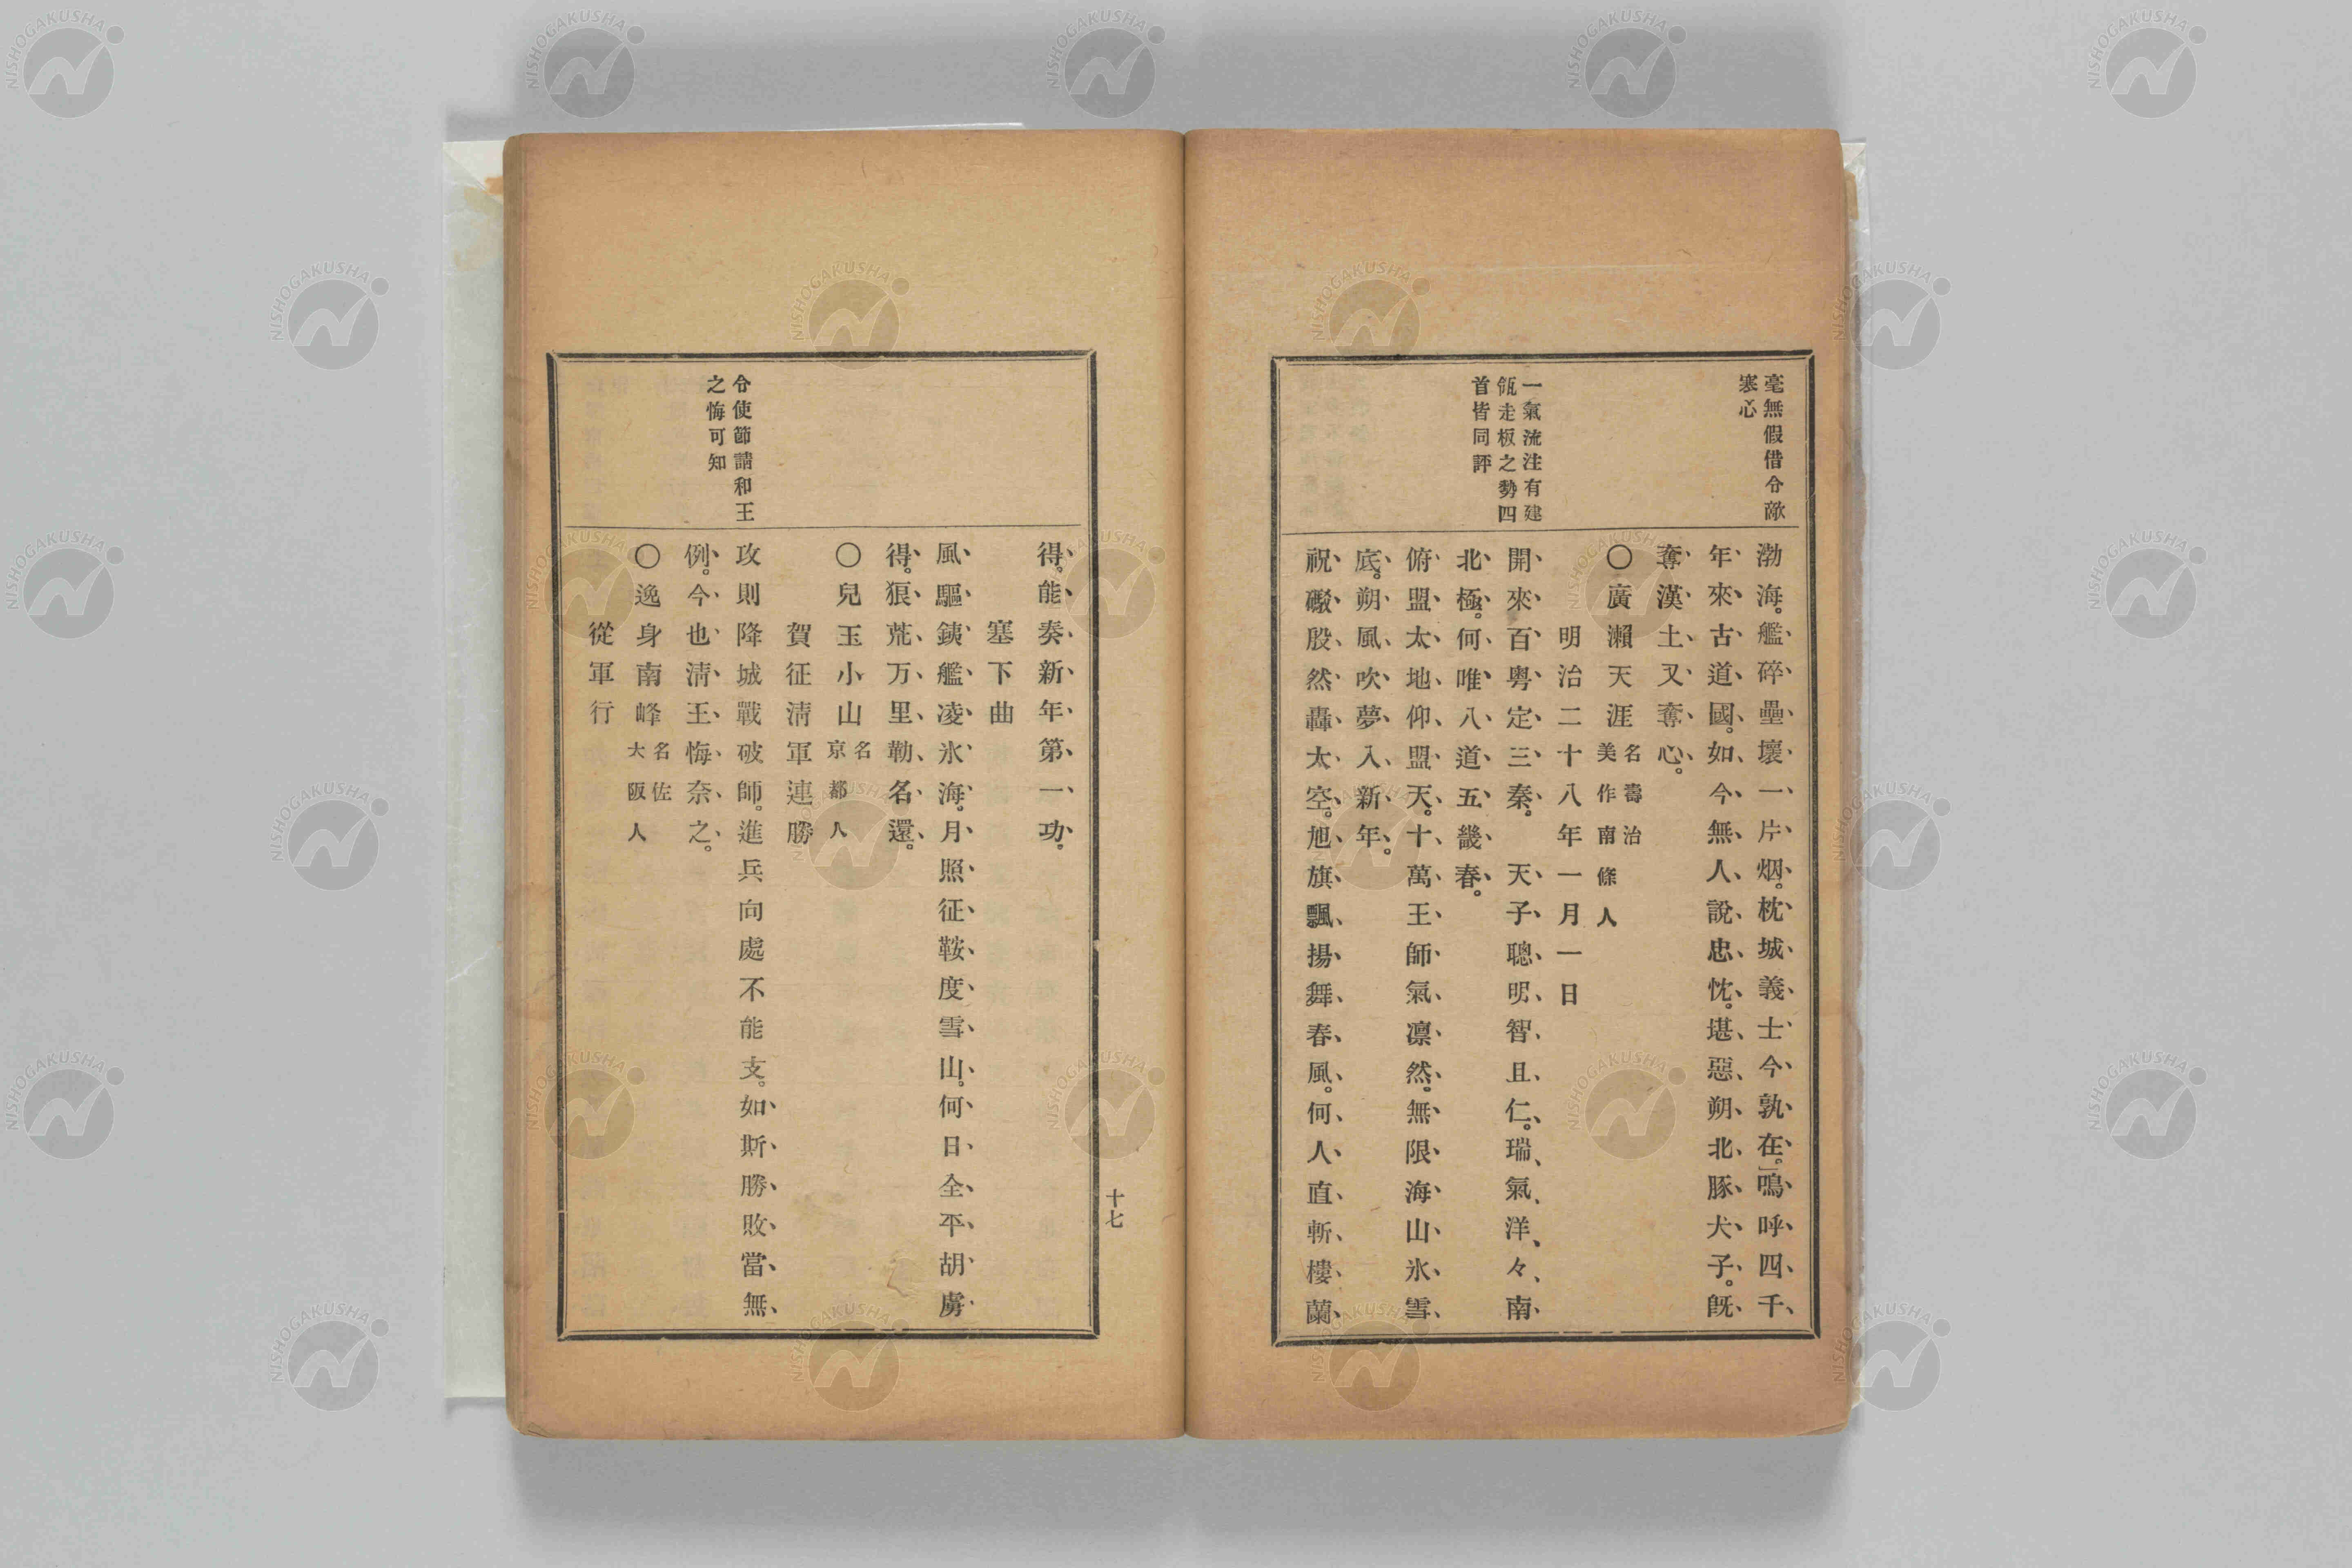 毫無假借令敵
寒心
渤海。艦碎壘壞一片烟。枕城義士今孰在。」鳴呼四千
年來古道國。如今無人說忠忱。堪惡朔北豚犬子。旣
奪漢土又奪心。
〇廣瀨天涯 名壽治
美作南條人
明治二十八年一月一日
一氣流注有建
瓴走板之勢四
首皆同評
開來百粤定三秦。　天子聰明智且仁。瑞氣洋々南
北極。何唯八道五畿春。
俯盟太地仰盟天。十萬王師氣凛然。無限海山氷雪
底。朔風吹夢入新年。
祝礮殷然轟太空。旭旗飄揚舞春風。何人直斬樓蘭
得。能奏新年第一功。
塞下曲
風驅鐵艦凌氷海。月照征鞍度雪山。何日全平胡虜
得。狠荒万里勒名還。
〇兒玉小山 名
京都人
賀征淸軍連勝
令使節請和王
之悔可知
攻則降城戰破師。進兵向處不能支。如斯勝敗當無
例。今也淸王悔奈之。
〇逸身南峰 名佐
大阪人
從軍行
十七
NISHOGAKUSHA